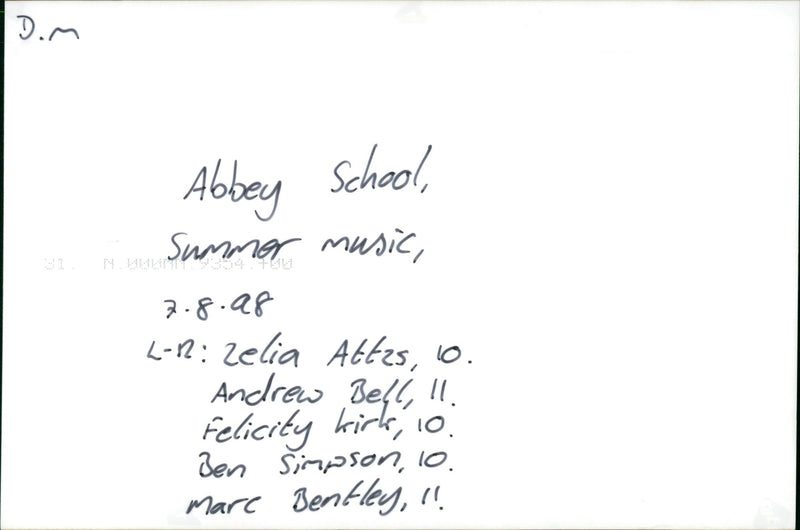 D.M
Abbey School,
Summer music,
31. N.000AA.9354.+00
7.8.98
L-R: Zelia Attzs, 10.
Andrew Bell, 11.
Felicity Kirk, 10.
Ben Simpson, 10.
Marc Bentley, 11.